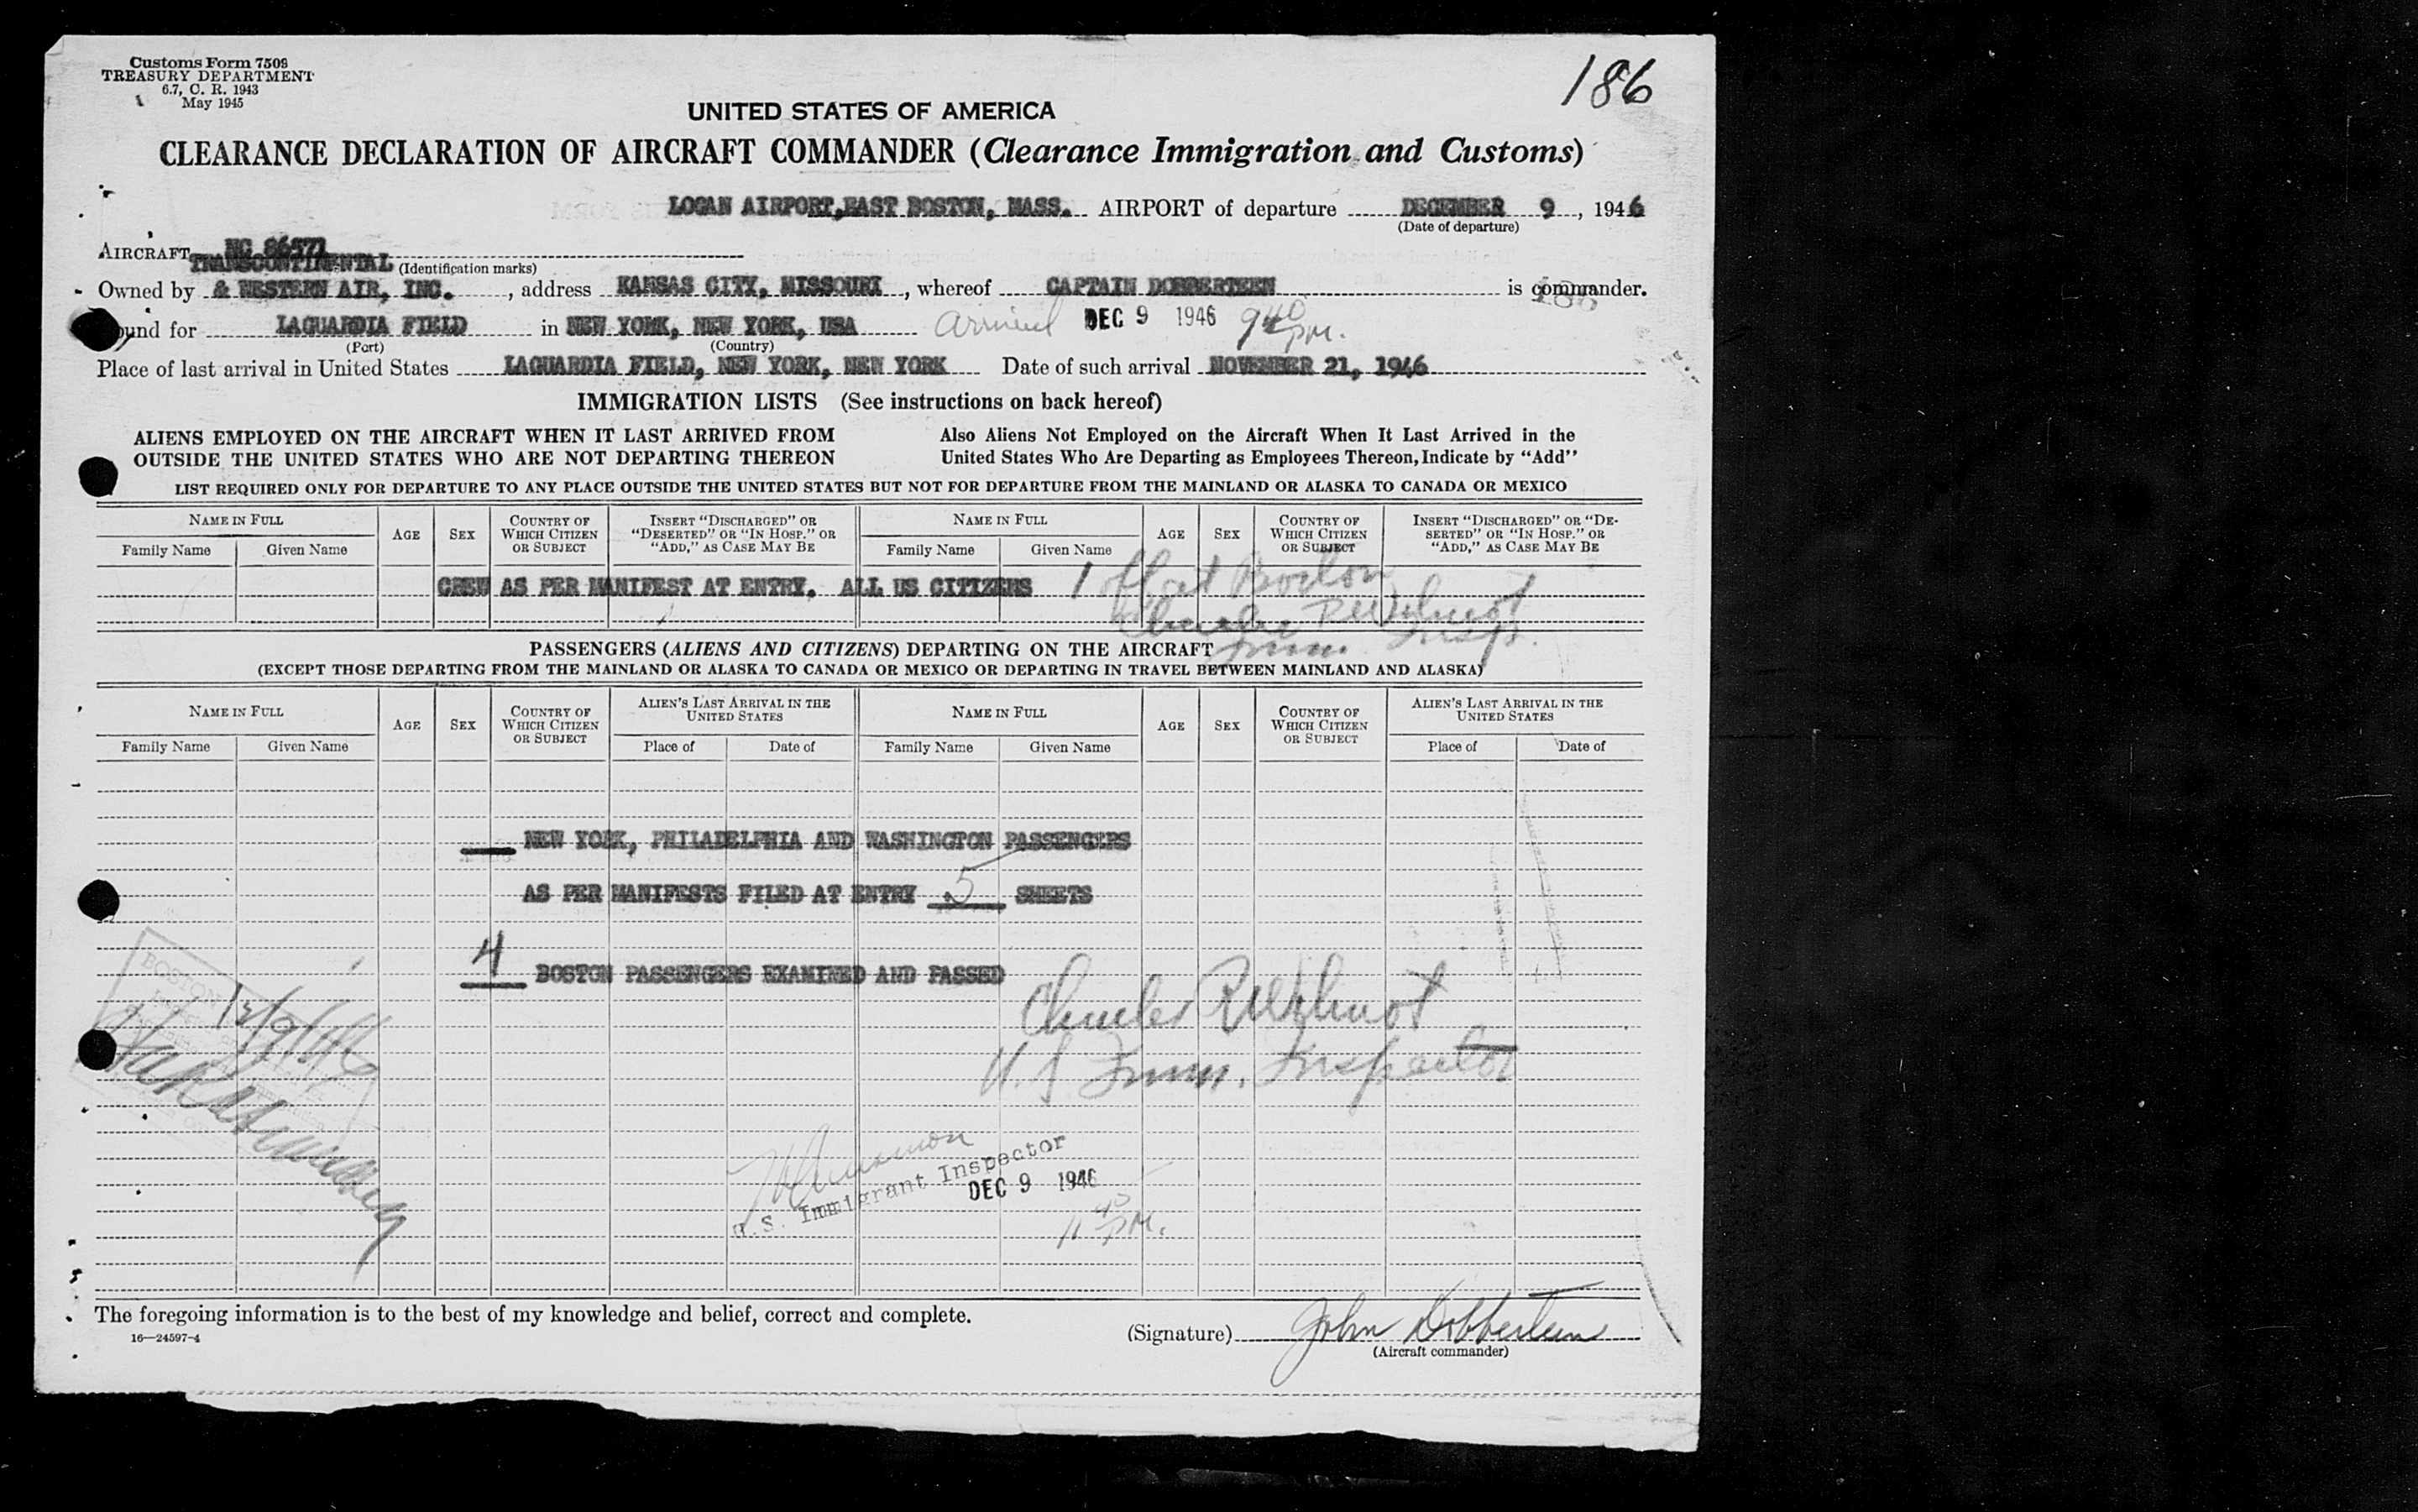 Customs Form 7509
TREASURY DEPARTMENT
6.7, C. R. 1943
May 1945
186
UNITED STATES OF AMERICA
CLEARANCE DECLARATION OF AIRCRAFT COMMANDER (Clearance Immigration and Customs)
LOGAN AIRPORT, EAST BOSTON, MASS. AIRPORT of departure DECEMBER 9, 1946
(Date of departure)
AIRCRAFT NC 86571
TRANSCONTINENTAL (Identification marks)
Owned by & WESTERN AIR, INC., address KANSAS CITY, MISSOURI, whereof CAPTAIN DOBBERTEEN is commander.
Bound for LAGUARDIA FIELD in NEW YORK, NEW YORK, USA arrived DEC 9 1946 9 40 PM.
(Port) (Country)
Place of last arrival in United States LAGUARDIA FIELD, NEW YORK, NEW YORK Date of such arrival NOVEMBER 21, 1946
IMMIGRATION LISTS (See instructions on back hereof)
ALIENS EMPLOYED ON THE AIRCRAFT WHEN IT LAST ARRIVED FROM
OUTSIDE THE UNITED STATES WHO ARE NOT DEPARTING THEREON
Also Aliens Not Employed on the Aircraft When It Last Arrived in the
United States Who Are Departing as Employees Thereon, Indicate by "Add"
LIST REQUIRED ONLY FOR DEPARTURE TO ANY PLACE OUTSIDE THE UNITED STATES BUT NOT FOR DEPARTURE FROM THE MAINLAND OR ALASKA TO CANADA OR MEXICO
NAME IN FULL AGE SEX COUNTRY OF WHICH CITIZEN OR SUBJECT INSERT "DISCHARGED" OR "DESERTED" OR "IN HOSP." OR "ADD," AS CASE MAY BE NAME IN FULL AGE SEX COUNTRY OF WHICH CITIZEN OR SUBJECT INSERT "DISCHARGED" OR "DE-SERTED" OR "IN HOSP." OR "ADD," AS CASE MAY BE
Family Name Given Name Family Name Given Name
CREW AS PER MANIFEST AT ENTRY. ALL US CITIZENS 1 off at Boston
Charles
Imm. Insp.
PASSENGERS (ALIENS AND CITIZENS) DEPARTING ON THE AIRCRAFT
(EXCEPT THOSE DEPARTING FROM THE MAINLAND OR ALASKA TO CANADA OR MEXICO OR DEPARTING IN TRAVEL BETWEEN MAINLAND AND ALASKA)
NAME IN FULL AGE SEX COUNTRY OF WHICH CITIZEN OR SUBJECT ALIEN'S LAST ARRIVAL IN THE UNITED STATES NAME IN FULL AGE SEX COUNTRY OF WHICH CITIZEN OR SUBJECT ALIEN'S LAST ARRIVAL IN THE UNITED STATES
Family Name Given Name Place of Date of Family Name Given Name Place of Date of
NEW YORK, PHILADELPHIA AND WASHINGTON PASSENGERS
AS PER MANIFESTS FILED AT ENTRY 5 SHEETS
4 BOSTON PASSENGERS EXAMINED AND PASSED
Charles
U.S. Imm. Inspector
BOSTON
12/9/46
U.S. Immigrant Inspector
DEC 9 1946
11 PM.
The foregoing information is to the best of my knowledge and belief, correct and complete.
16—24597-4
(Signature) John Dobberteen
(Aircraft commander)